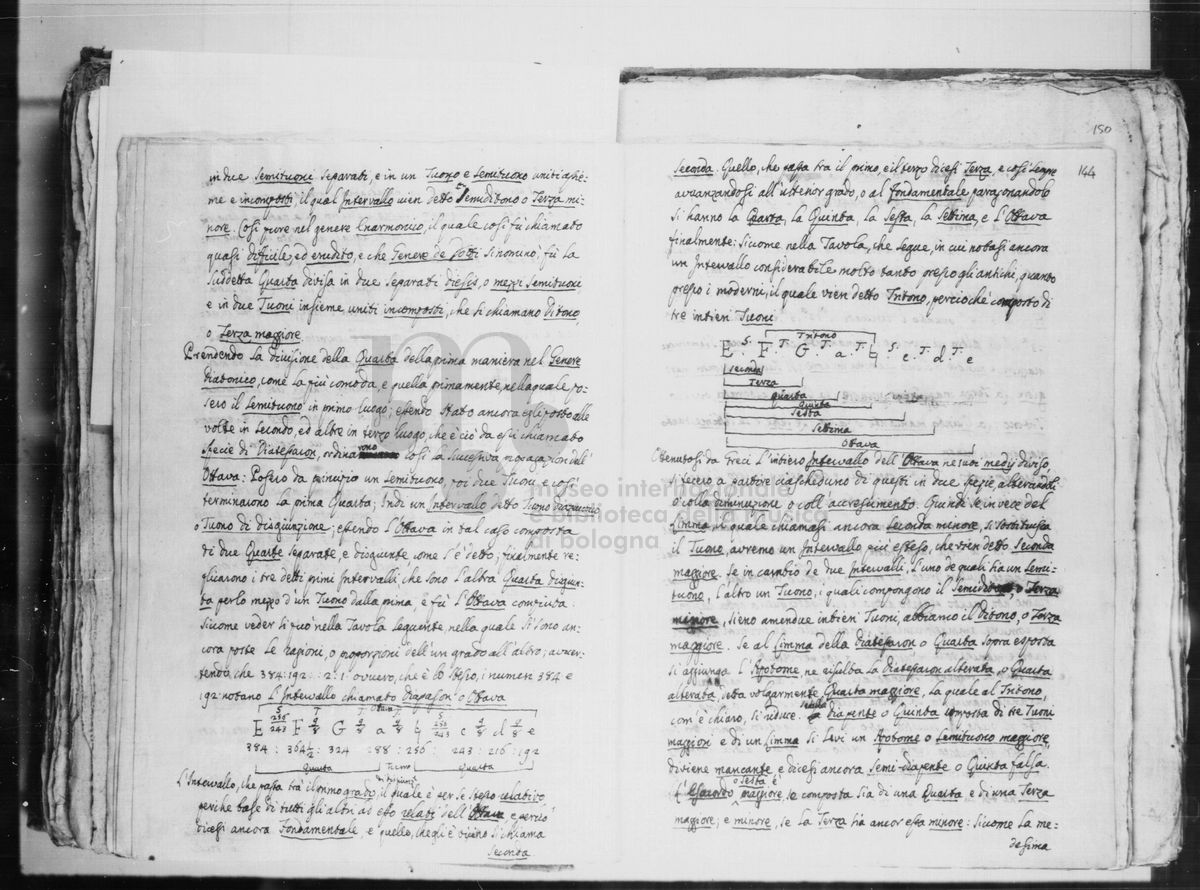 in due Semituoni separati, e in un Tuono e Semituono uniti asie-
me e incomposti il qual Intervallo vien detto Semiditono o Terza mi-
nore. Così pure nel genere Enarmonico, il quale così fù chiamato
quasi difficile, ed erudito, e che Genere de Dotti si nominò; fù la
suddetta Quarta divisa in due separati diesis, o mezzi Semituoni
e in due Tuoni insieme uniti incomposti, che si chiamano Ditono,
o Terza maggiore.
Prendendo la divisione della Quarta della prima maniera nel Genere
Diatonico, come la più comoda, e quella primamente, nella quale po-
sero il Semituono in primo luogo; essendo stato ancora egli posto alle
volte in secondo, ed altre in terzo luogo, che è ciò da essi chiamato
specie di Diatessaron, ordinarono così la successiva propagazion dell'
Ottava: Posero da principio un Semituono, poi due Tuoni, e così
terminarono la prima Quarta; Indi un Intervallo detto Tuono diazeuctico
o Tuono di disgiunzione; essendo l'Ottava in tal caso composta
di due Quarte separate, e disgiunte come s'è detto; finalmente re-
plicarono i tre detti primi Intervalli che sono l'altra Quarta disgiun-
ta per lo mezzo d'un Tuono dalla prima, e fù l'Ottava compiuta.
Sicome veder si può nella Tavola seguente, nella quale si sono an-
cora poste le ragioni, o proporzioni dell'un grado all'altro; avver-
tendo che 384:192::2:1 ovvero, che è lo stesso, i numeri 384 e
192 notano l'Intervallo chiamato Diapason o Ottava
Ottava
S T T
E 256/243 F 9/8 G 9/8 a 9/8 ♮ 256/243 c 9/8 d 9/8 e
384 : 364½ : 324 288 : 256 : 243 : 216 : 192
quarta Tuono quarta
L'Intervallo, che passa trà il primo grado, il quale è per se stesso relativo
perche base di tutti gli altri ad esso relati dell'Ottava e perciò
dicesi ancora Fondamentale, e quello, che gli è vicino si chiama
Seconda
150
144
Seconda. Quello, che passa tra il primo, e il terzo dicesi Terza, e così sempre
avvanzandosi all'ulterior grado, o al fondamentale paragonandolo
si hanno la Quarta, la Quinta, la Sesta, la Settima, e l'Ottava
finalmente: Sicome nella Tavola, che segue, in cui notasi ancora
un Intervallo considerabile molto tanto presso gli antichi, quanto
presso i moderni, il quale vien detto Tritono, perciò che composto di
tre intieri Tuoni
Tritono
E S. F T. G T. a T. ♮ S. c T. d T. e
seconda
Terza
quarta
Quinta
Sesta
Settima
Ottava
Ottenutosi da Greci l'intiero Intervallo dell'Ottava ne suoi medj diviso,
si fecero a partire ciascheduno di questi in due spezie alterandol
o colla diminuzione o coll'accrescimento. Quindi se in vece del
Limma, il quale chiamasi ancora Seconda minore, si sostituisca
il Tuono, avremo un Intervallo più esteso, che vien detto Seconda
maggiore. Se in cambio de due Intervalli, l'uno de quali ha un Semi-
tuono, l'altro un Tuono, i quali compongono il Semiditono, o Terza
minore, sieno amendue intieri Tuoni, abbiamo il Ditono, o Terza
maggiore. Se al Limma della Diatessaron o Quarta sopra esposta
si aggiunga l'Apotome, ne risulta la Diatessaron alterata, o Quarta
alterata, detta volgarmente Quarta maggiore, la quale al Tritono,
com'è chiaro, si riduce. Se dalla Diapente o Quinta composta di tre Tuoni
maggiori e di un Limma si levi un Apotome o Semituono maggiore,
diviene mancante e dicesi ancora Semi-diapente o Quinta falsa.
L'Esacordo o Sesta è maggiore, se composta sia di una Quarta e di una Terza
maggiore; e minore, se la Terza hà ancor essa minore: Sicome la me-
desima
museo internazionale
e biblioteca della musica
di bologna